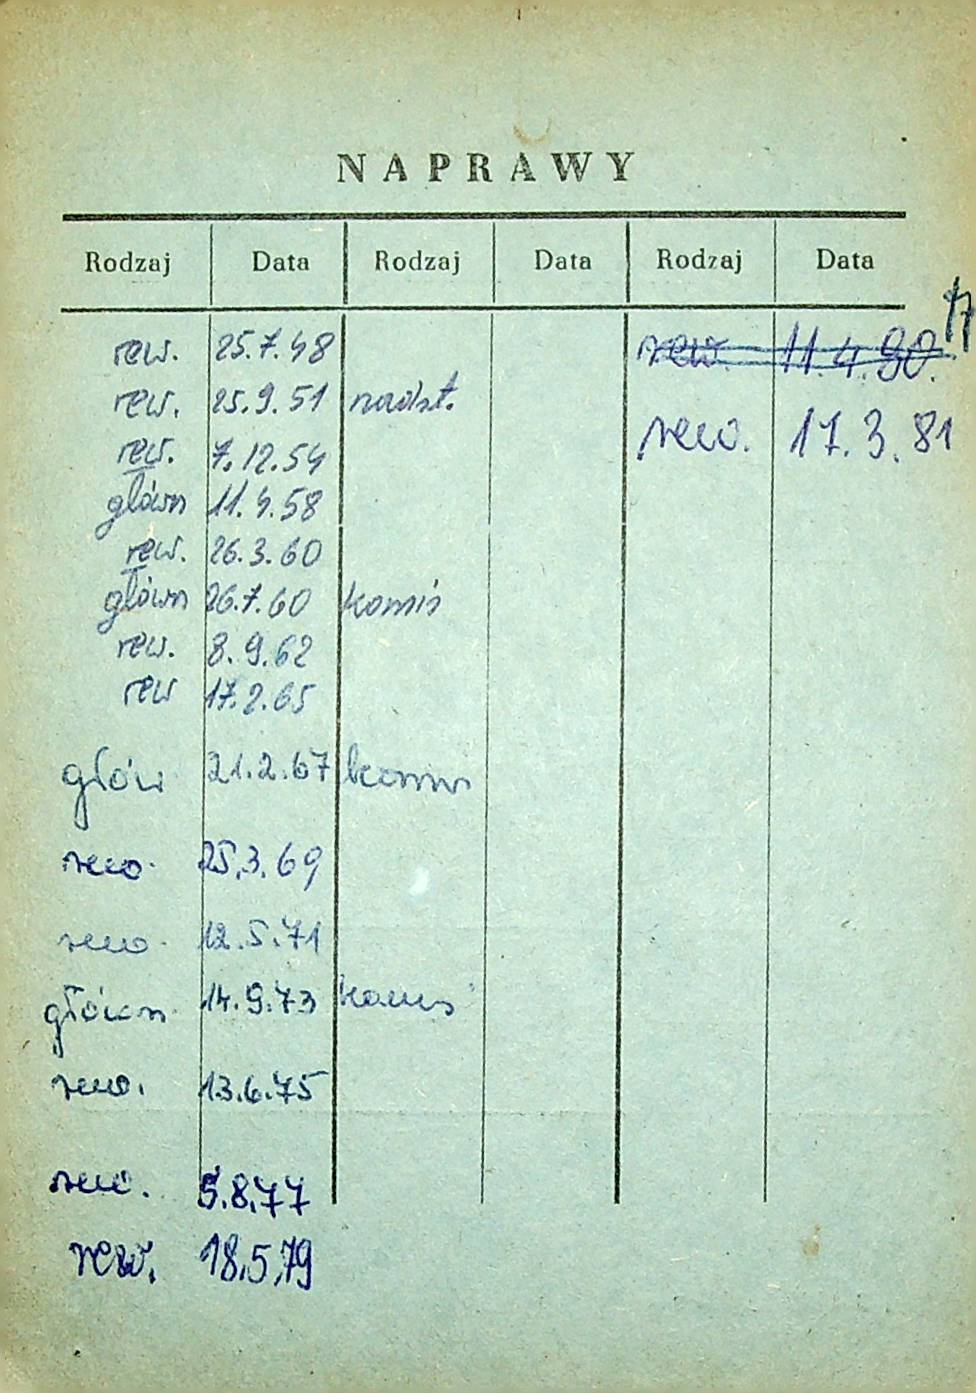 NAPRAWY
Rodzaj Data Rodzaj Data Rodzaj Data
rew. 25.7.48
rew. 25.9.51 nadzt.
rew. 7.12.54
główn 11.4.58
rew. 26.3.60
główn 26.7.60 komis
rew. 8.9.62
rew 17.2.65
głów 21.2.67 komis
rew. 25.3.69
rew. 12.5.71
główn. 14.9.73 komis
rew. 13.6.75
rew. 5.8.77
rew. 18.5.79
rew. 11.4.80.
rew. 17.3.81